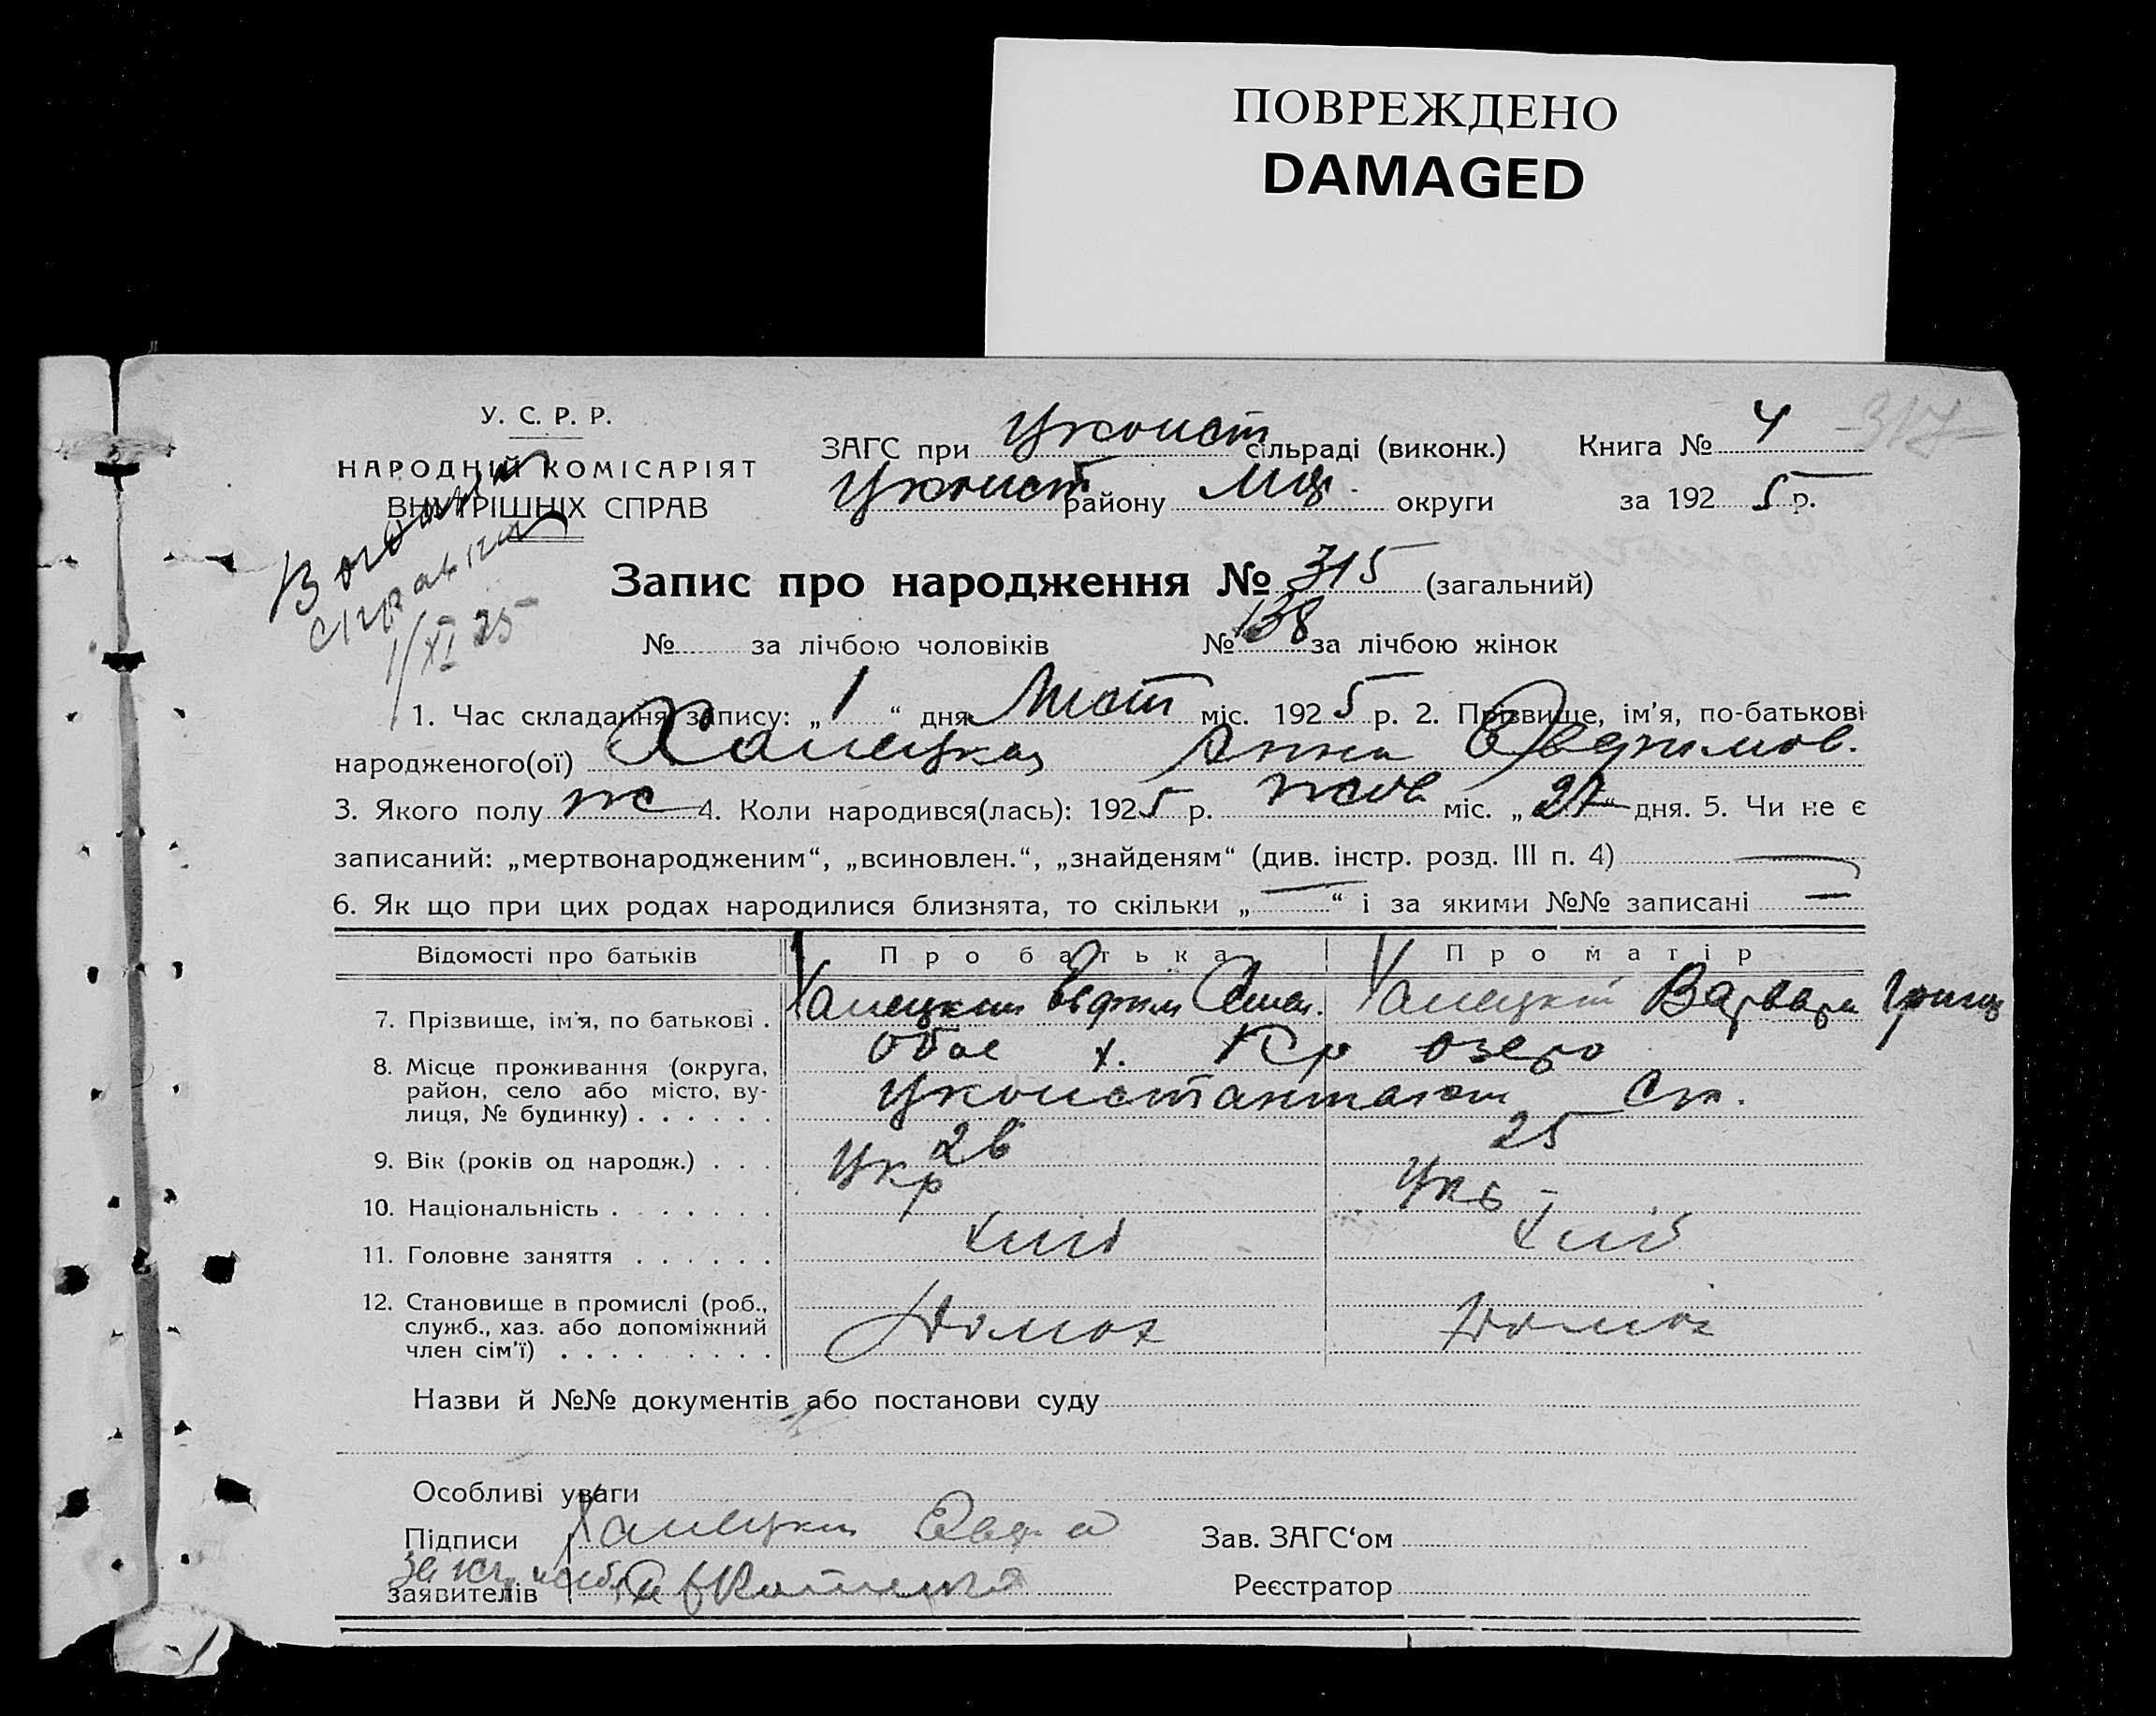 ПОВРЕЖДЕНО
DAMAGED
У. С. Р. Р.
НАРОДНІЙ КОМІСАРІЯТ
ВНУТРІШНІХ СПРАВ
ЗАГС при Уконст сільраді (виконк.)
Уконст району округи
Книга № 4
за 1925 р.
317
1/XI 25
Запис про народження № 315 (загальний)
№ за лічбою чоловіків № 138 за лічбою жінок
1. Час складання запису: „ 1 “ дня Лист міс. 1925 р. 2. Прізвище, ім'я, по-батькові
народженого(ої) Ханецкая Анна
3. Якого полу ж 4. Коли народився(лась): 1925 р. жовт міс. „ 27 “ дня. 5. Чи не є
записаний: „мертвонародженим“, „всиновлен.“, „знайденям“ (див. інстр. розд. III п. 4) —
6. Як що при цих родах народилися близнята, то скільки „ — “ і за якими №№ записані —
Відомості про батьків Про батька Про матір
7. Прізвище, ім'я, по батькові . Ханецкий Ефим Ханецкий Варвара Григ
8. Місце проживання (округа, район, село або місто, вулиця, № будинку) . . . . . . х. Кр озеро
9. Вік (років од народж.) . . . 26 25
10. Національність . . . . . . . Укр Укр
11. Головне заняття . . . . . . хліб хліб
12. Становище в промислі (роб., служб., хаз. або допоміжний член сім'ї) . . . . . . . . .
Назви й №№ документів або постанови суду
Особливі уваги
Підписи Ханецкий
заявителів
Зав. ЗАГС‘ом
Реєстратор